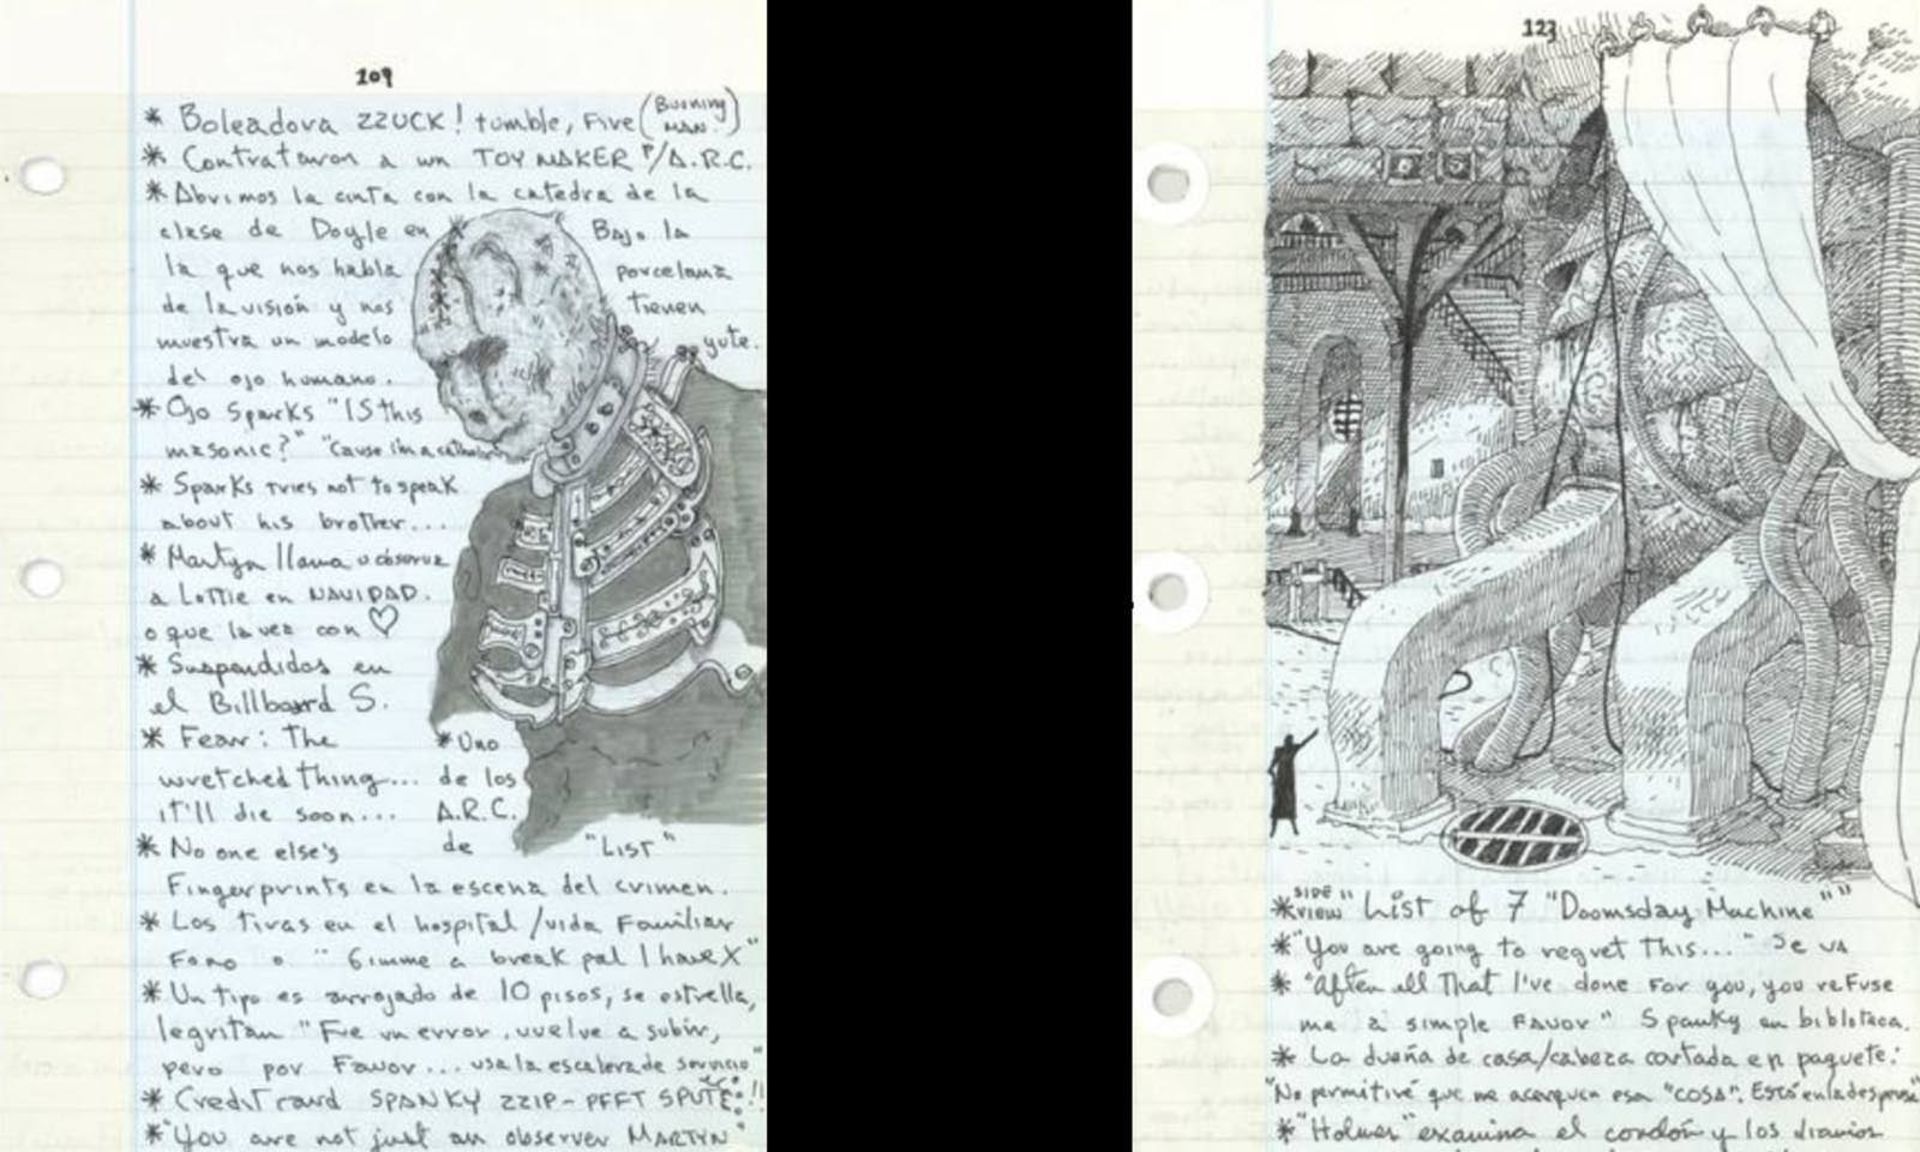 109
* Boleadora ZZUCK! tumble, Five (Burning MAN.)
* Contrataron a un TOY MAKER P/A.R.C.
* Abrimos la cinta con la catedra de la
clase de Doyle en
la que nos habla
de la visión y nos
muestra un modelo
del ojo humano.
Bajo la
porcelana
tienen
yute.
* Ojo Sparks "IS this
masonic?" "Cause i'm a catholic
* Sparks tries not to speak
about his brother...
* Martyn llama u observa
a Lottie en NAVIDAD.
o que la vea con ♡
* Suspendidos en
el Billboard S.
* Fear: The
wretched thing...
it'll die soon...
* Uno
de los
A.R.C.
de "List"
* No one else's
Fingerprints en la escena del crimen.
* Los tiras en el hospital/vida Familiar
Fono o " Gimme a break pal I have X"
* Un tipo es arrojado de 10 pisos, se estrella,
le gritan "Fue un error, vuelve a subir,
pero por Favor... usa la escalera de servicio"
* Credit card SPANKY ZZIP-PFFT SPUTE!!
* "You are not just an observer MARTYN"
123
* SIDE VIEW "List of 7 "Doomsday Machine""
* "You are going to regret This..." Se va
* "After all That I've done For you, you reFuse
me a simple FAVOR" Spanky en bibloteca.
* La dueña de casa/cabeza cortada en paquete:
"No permitiré que me acerquen esa "COSA". Está en la despensa"
* "Holmes" examina el cordón y los diarios